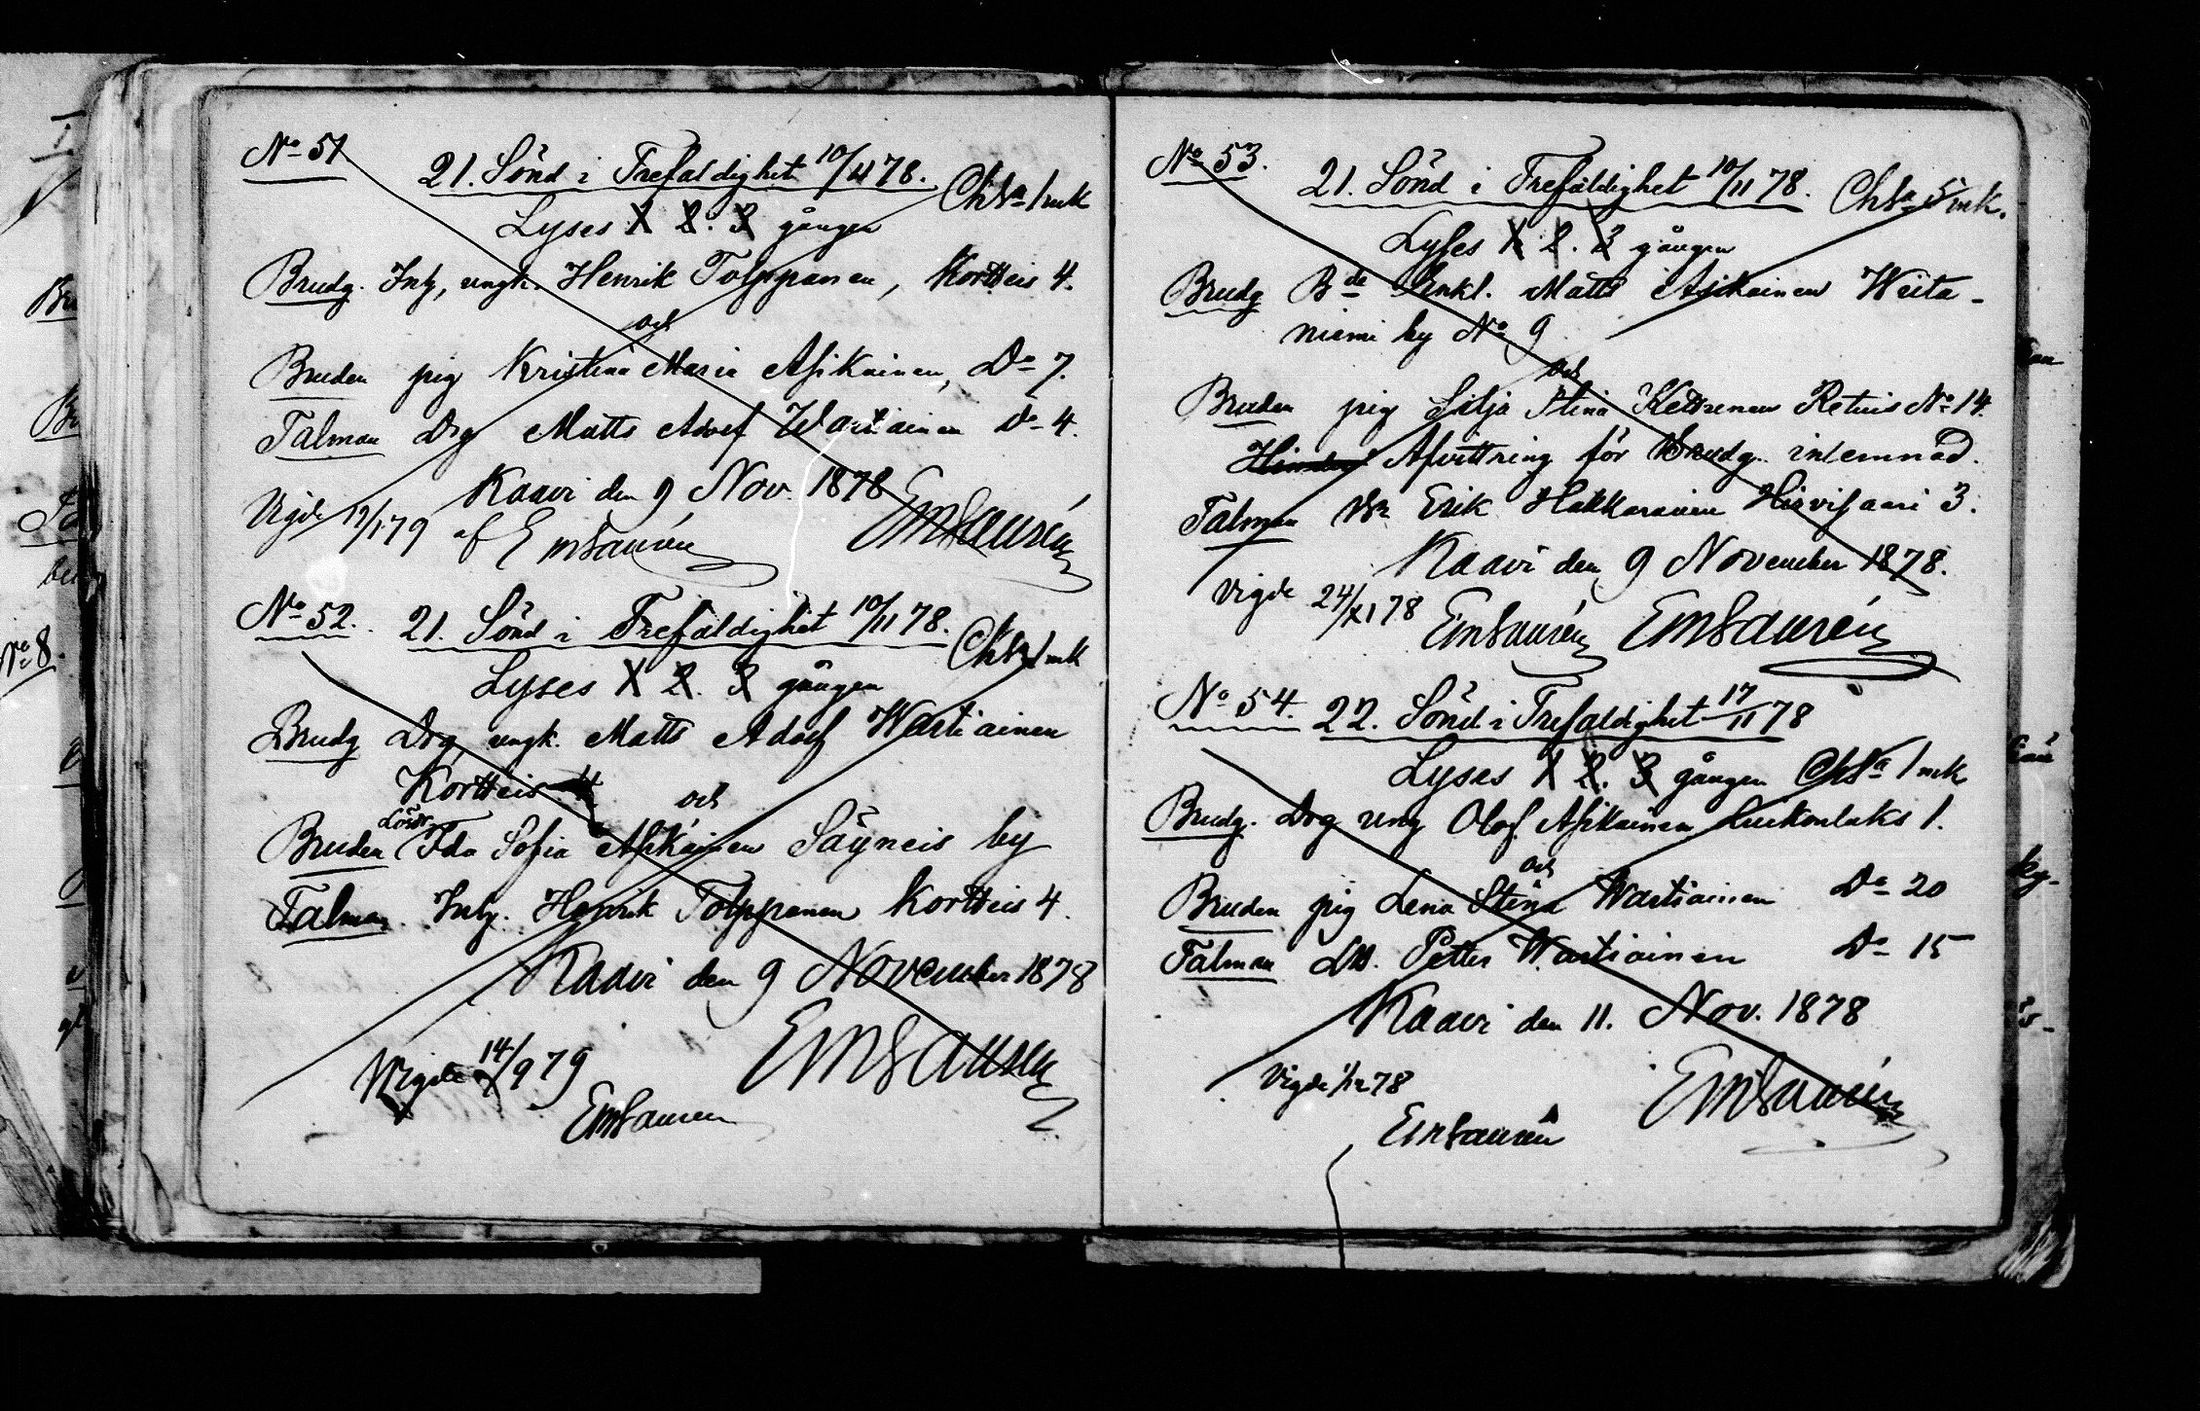 No 51
21. Sönd i Trefaldighet 10/11 78.
Chsa 1 mk
Lyses 1 2. 3 gången
Brudg. Inh, ungk. Henrik Tolppanen, Kortteis 4.
och
Bruden pig Kristina Maria Asikainen, Do 7.
Talman Drg Matts Adolf Wartiainen Do 4.
Kaavi den 9 Nov. 1878
Vigde /179 af EmSaurén
EmSaurén
No 52. 21. Sönd i Trefaldighet 10/11 78.
Chsa 1 mk
Lyses 1 2. 3 gången
Brudg Drg ungk. Matts Adolf Wartiainen
Kortteis 4
och
Bruden Lösdr Ida Sofia Asikainen Säyneis by
Talman. Inh. Henrik Tolppanen Kortteis 4.
Kaavi den 9 November 1878
EmSaurén
Vigde 14/9 79
EmSaurén
No 53.
21. Sönd i Trefaldighet 10/11 78.
Chsa 5 mk.
Lyses 1 2. 3 gången
Brudg Bde Enkl. Matts Asikainen Weita-
niemi by No 9
och
Bruden pig Silja Stina Kettunen Retuis No 14.
Afvittring för Brudg. inlemnad.
Talman Erik Hakkarainen Hirvisaari 3.
Kaavi den 9 November 1878.
Vigde 24/XI 78 EmSaurén EmSaurén
No 54. 22. Sönd i Trefaldighet 17/11 78
Lyses 1 2. 3 gången Chsa 1 mk
Brudg. Drg ung Olof Asikainen Luikonlaks 1.
och
Bruden pig Lena Stina Wartiainen Do 20
Talman Petter Wartiainen Do 15
Kaavi den 11. Nov. 1878
Vigde 1/12 78
EmSaurén
EmSaurén
No 8.